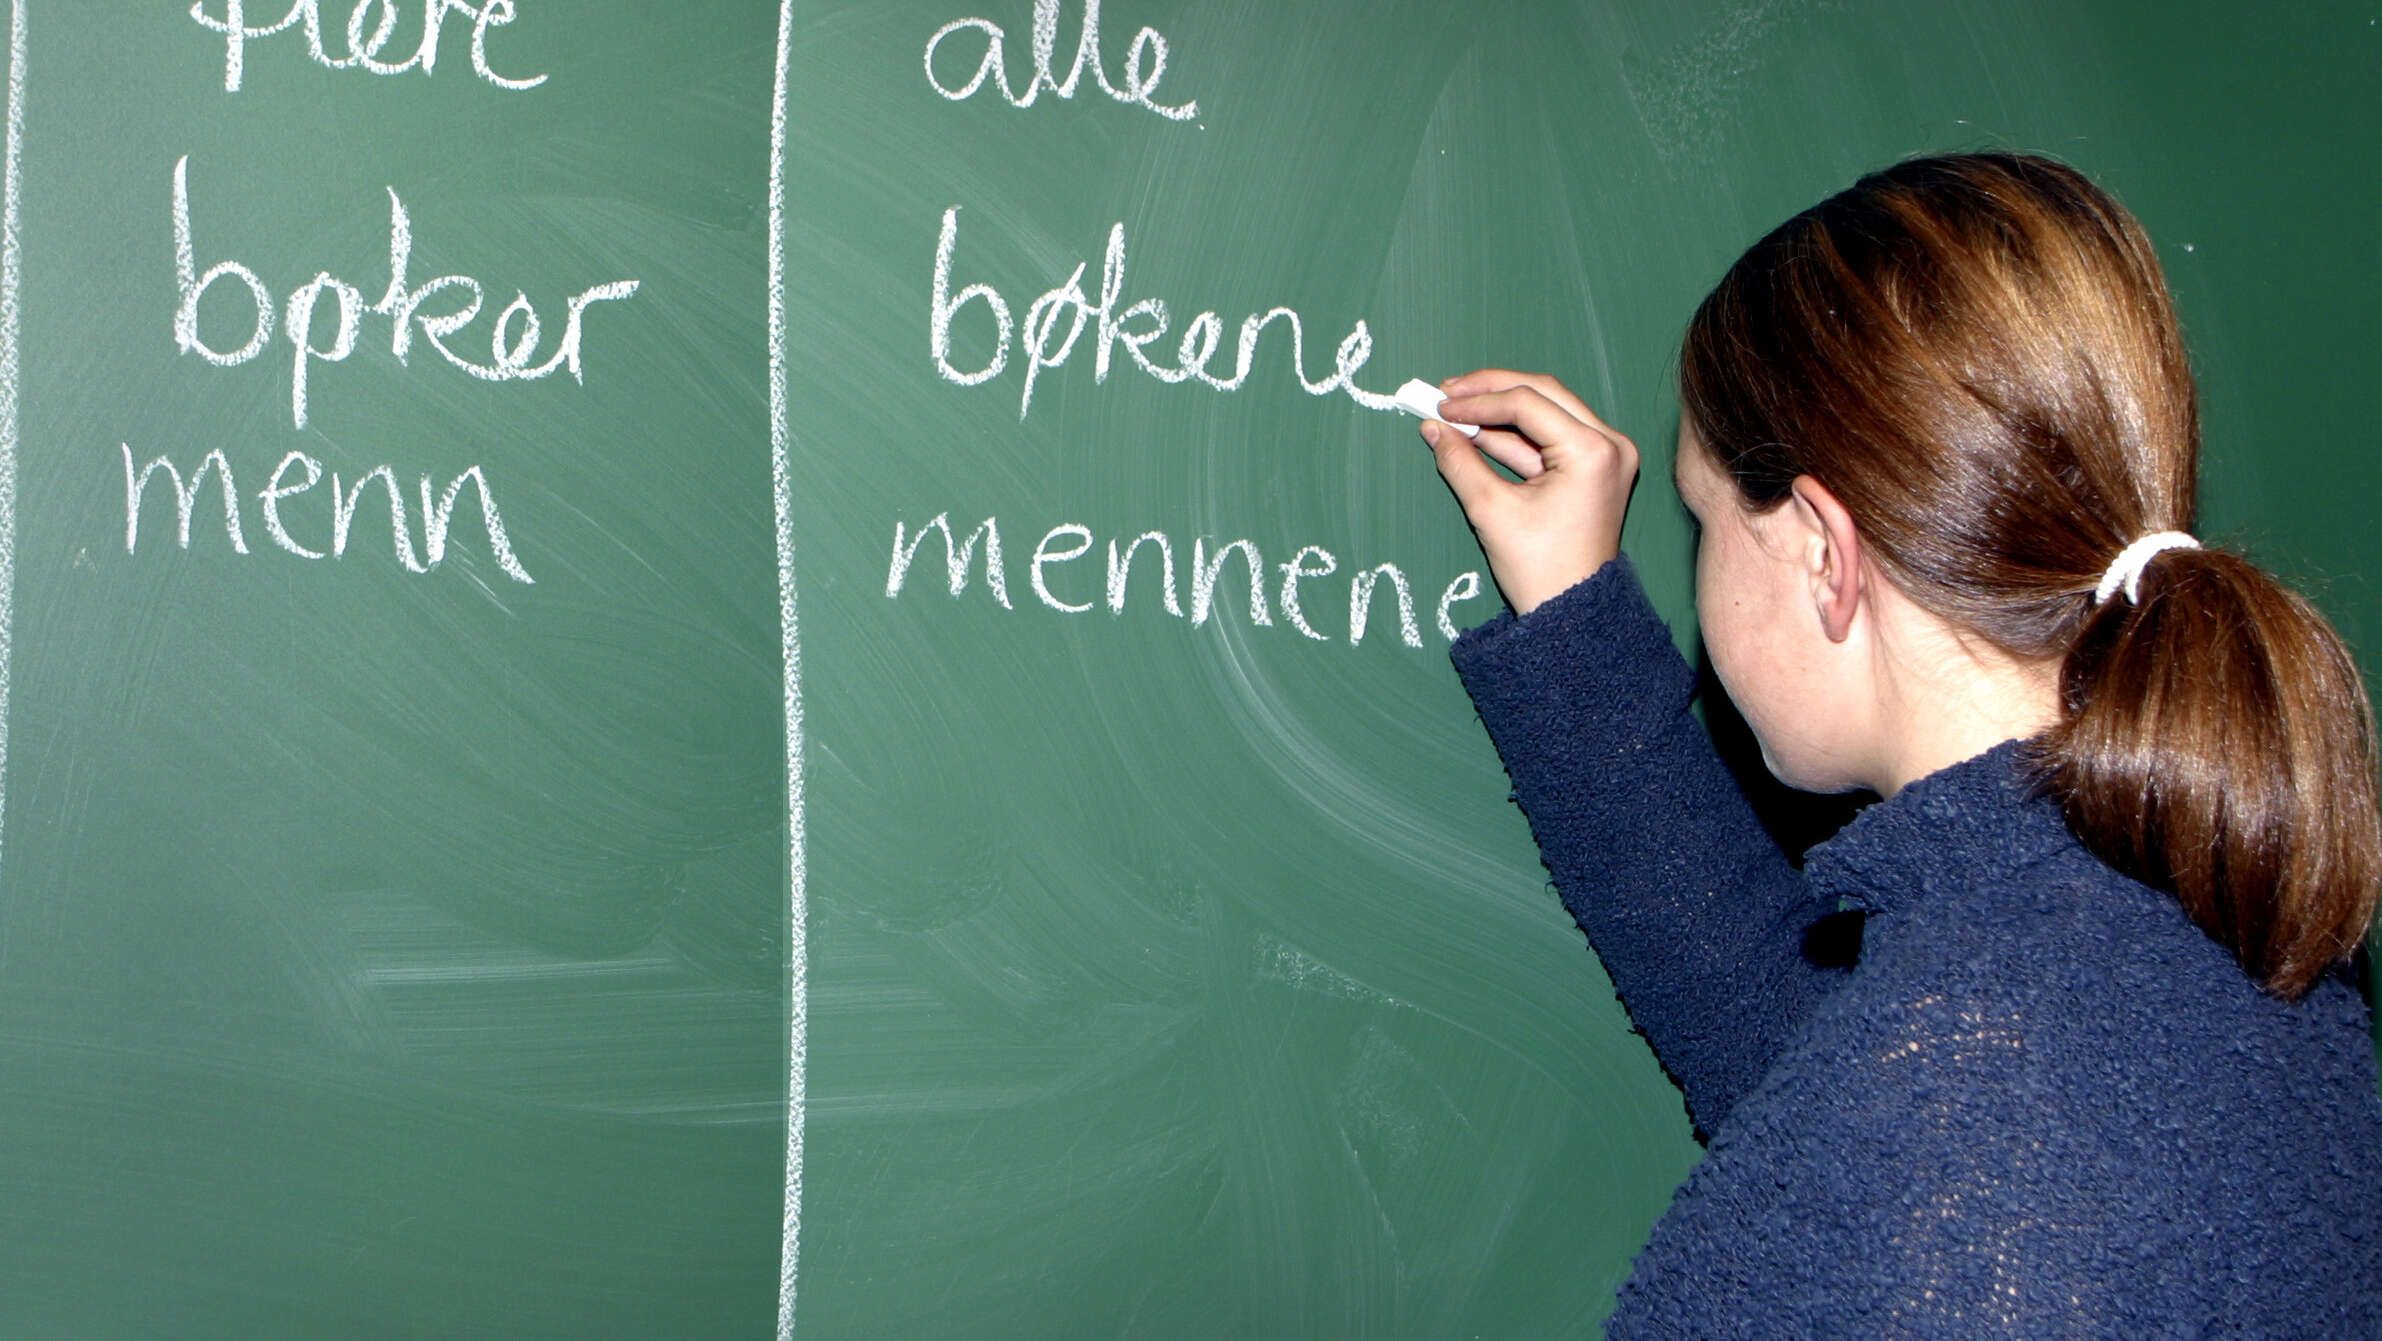 flere
bøker
menn
alle
bøkene
mennene